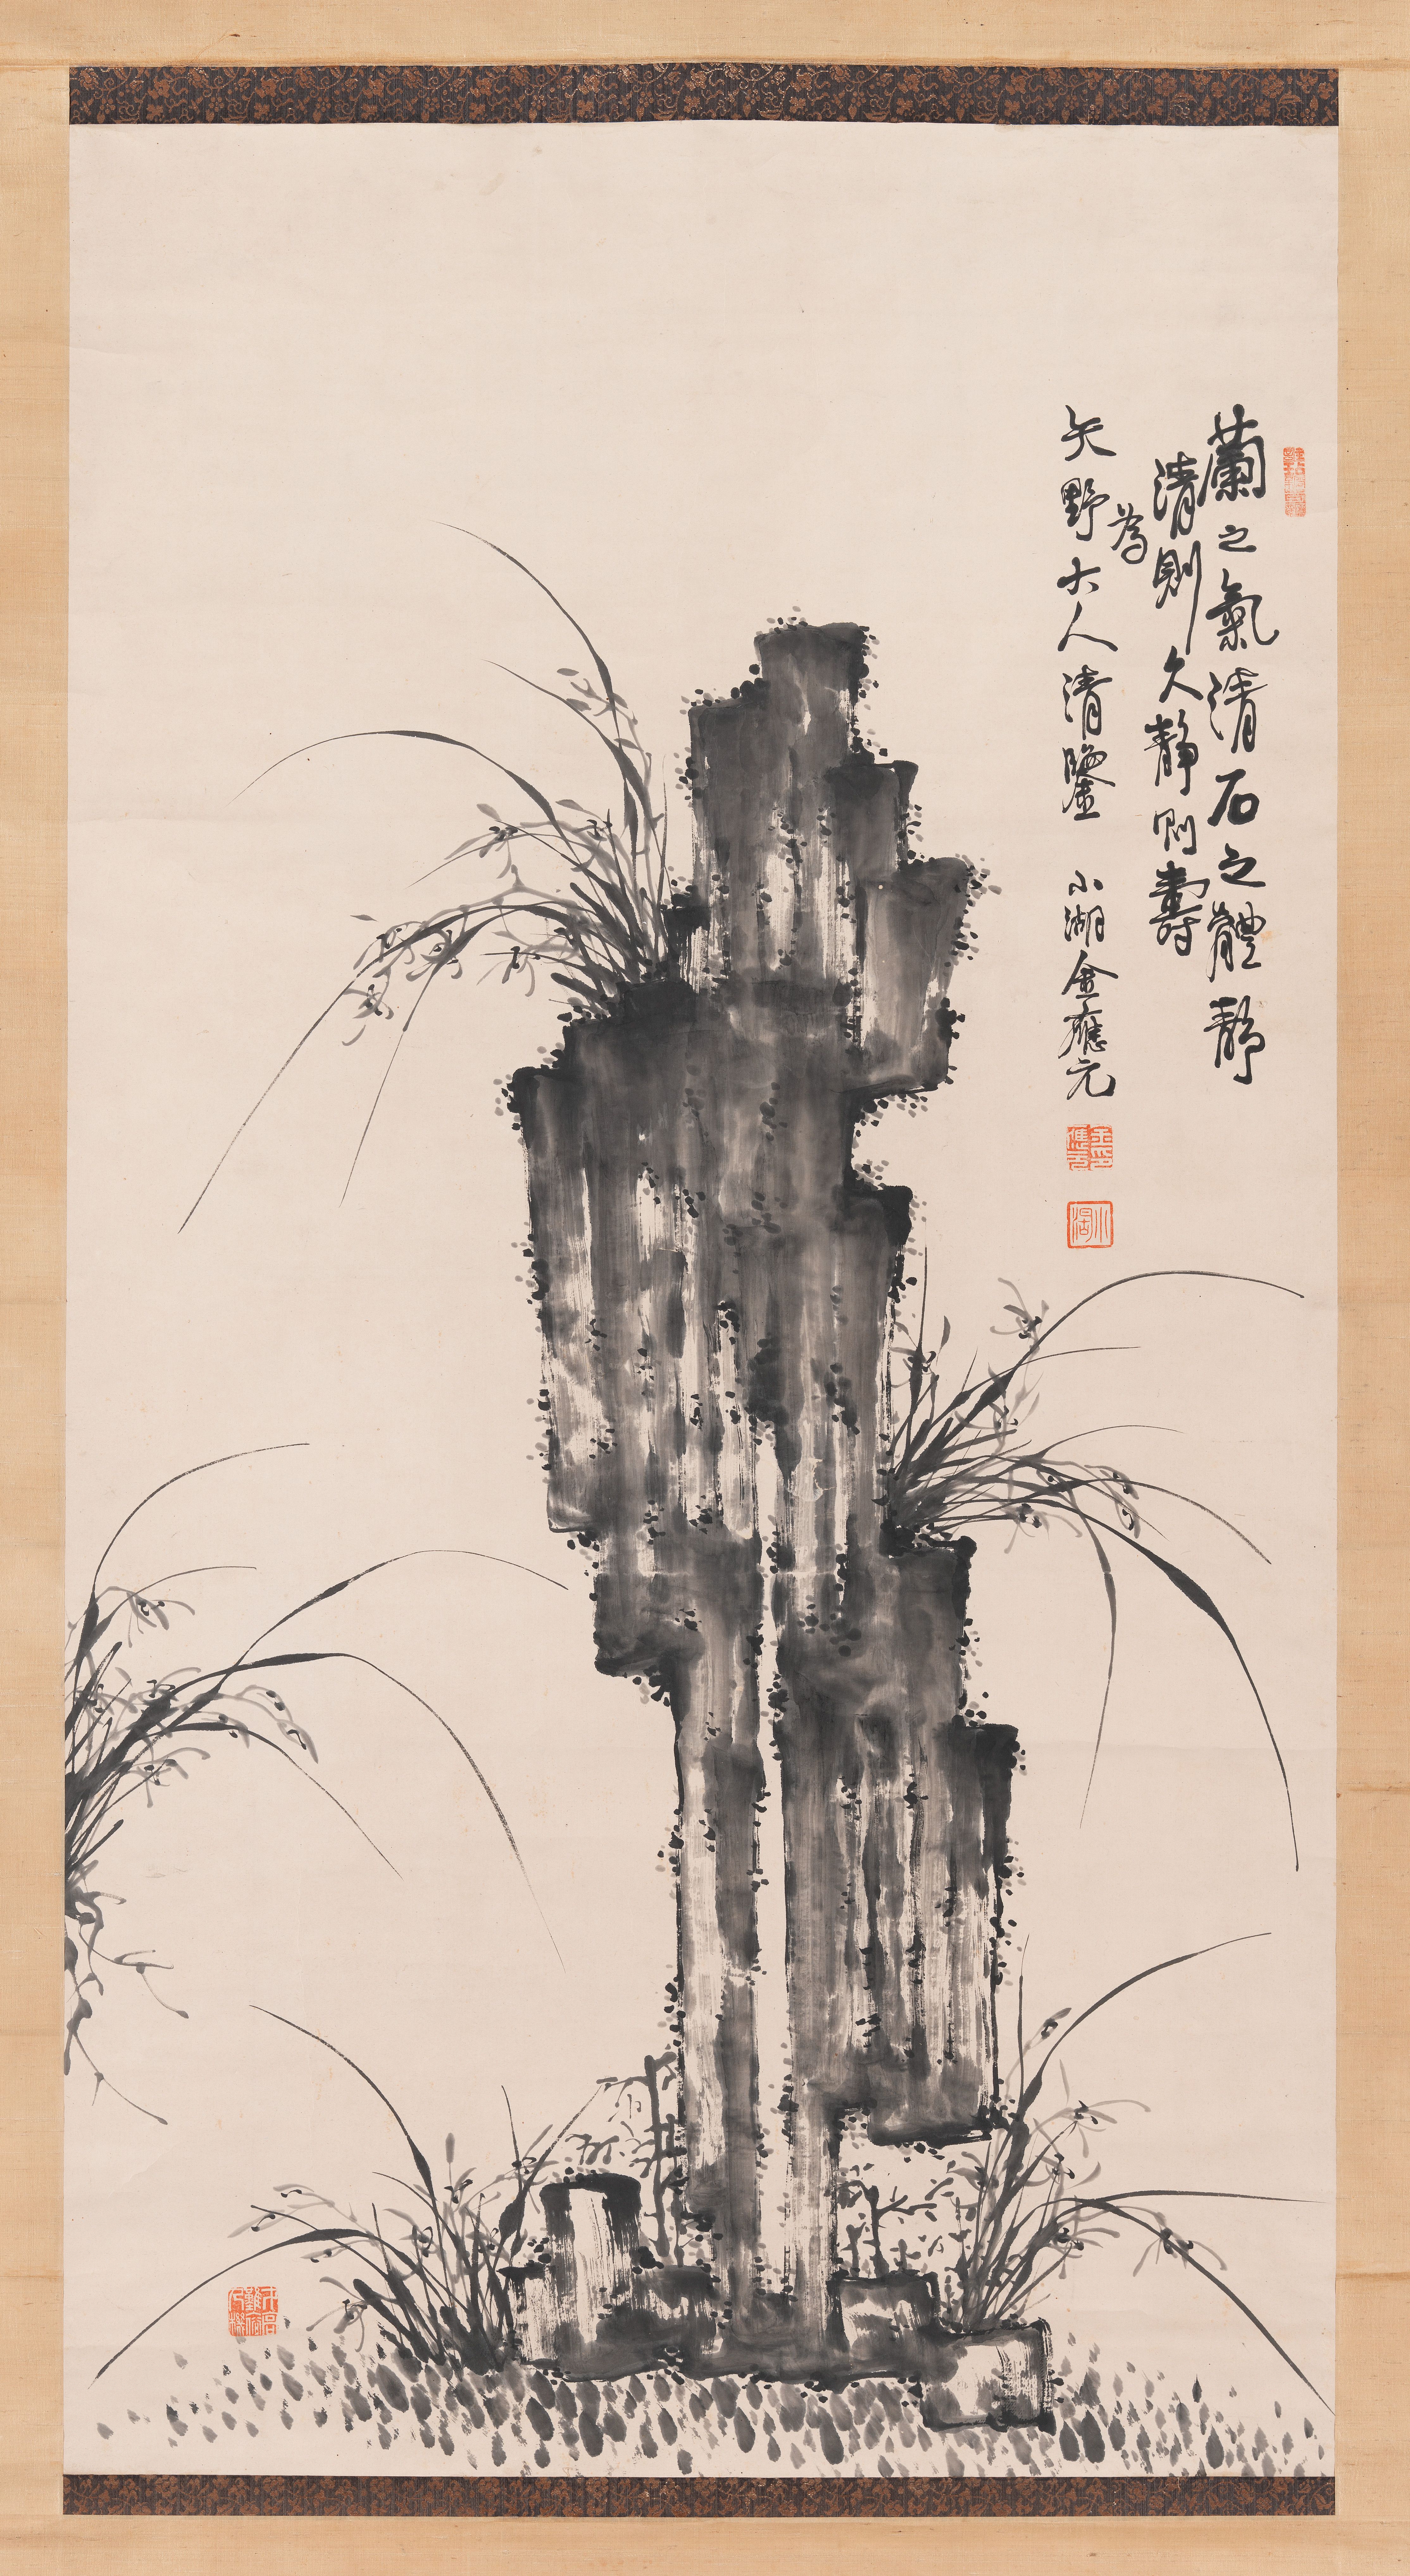 蘭之氣清石之體靜
清則久靜則壽
為
矢野大人清鑒 小湖金應元
金印應元
小湖